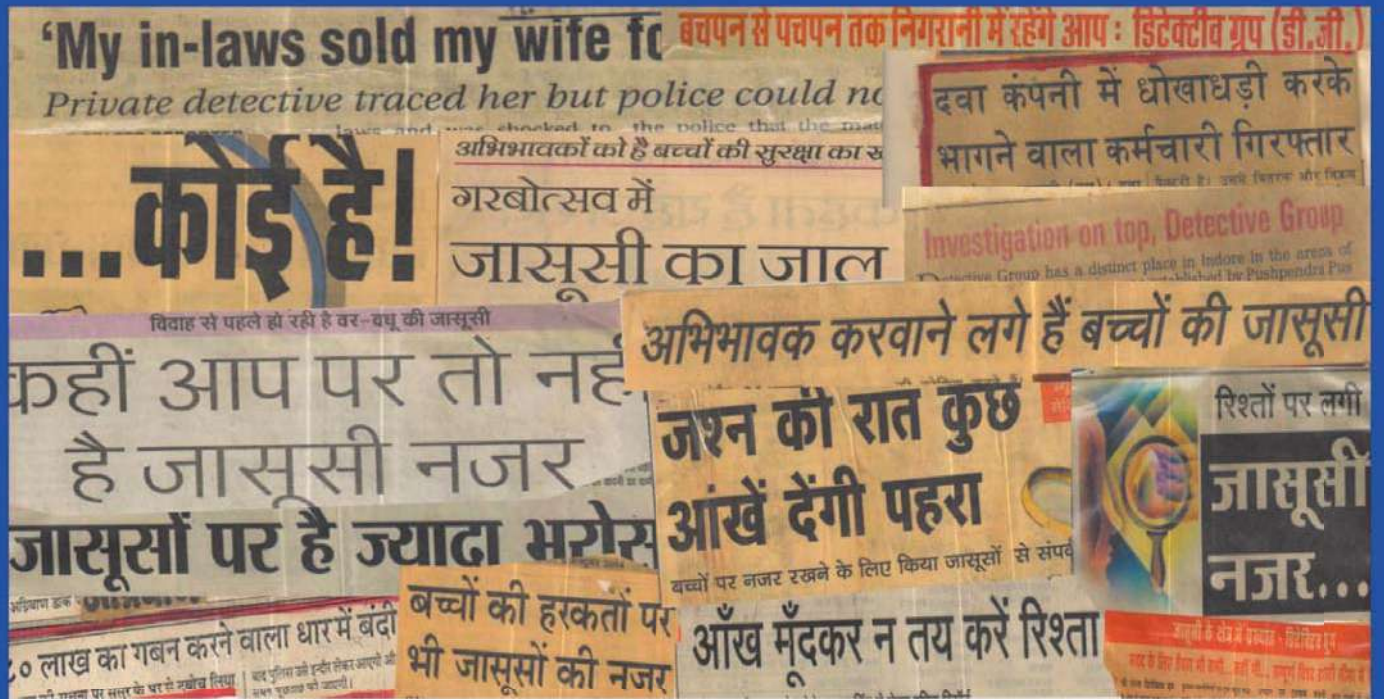 ‘My in-laws sold my wife
Private detective traced her but police could
बचपन से पचपन तक निगरानी में रहेंगे आप : डिटेक्टीव ग्रुप (डी.जी.)
दवा कंपनी में धोखाधड़ी करके
भागने वाला कर्मचारी गिरफ्तार
...कोई है!
अभिभावकों को है बच्चों की सुरक्षा का
गरबोत्सव में
जासूसी का जाल
Investigation on top, Detective Group
Detective Group has a distinct place in Indore in the arena of
by Pushpendra
विवाह से पहले हो रही है वर-वधू की जासूसी
कहीं आप पर तो
है जासूसी नजर
अभिभावक करवाने लगे हैं बच्चों की जासूसी
जश्न की रात कुछ
आंखें देंगी पहरा
बच्चों पर नजर रखने के लिए किया जासूसों से
रिश्तों पर लगी
जासूसी
नजर...
जासूसों पर है ज्यादा
लाख का गबन करने वाला धार में बंदी
बच्चों की हरकतों पर
भी जासूसों की नजर
आँख मूँदकर न तय करें रिश्ता